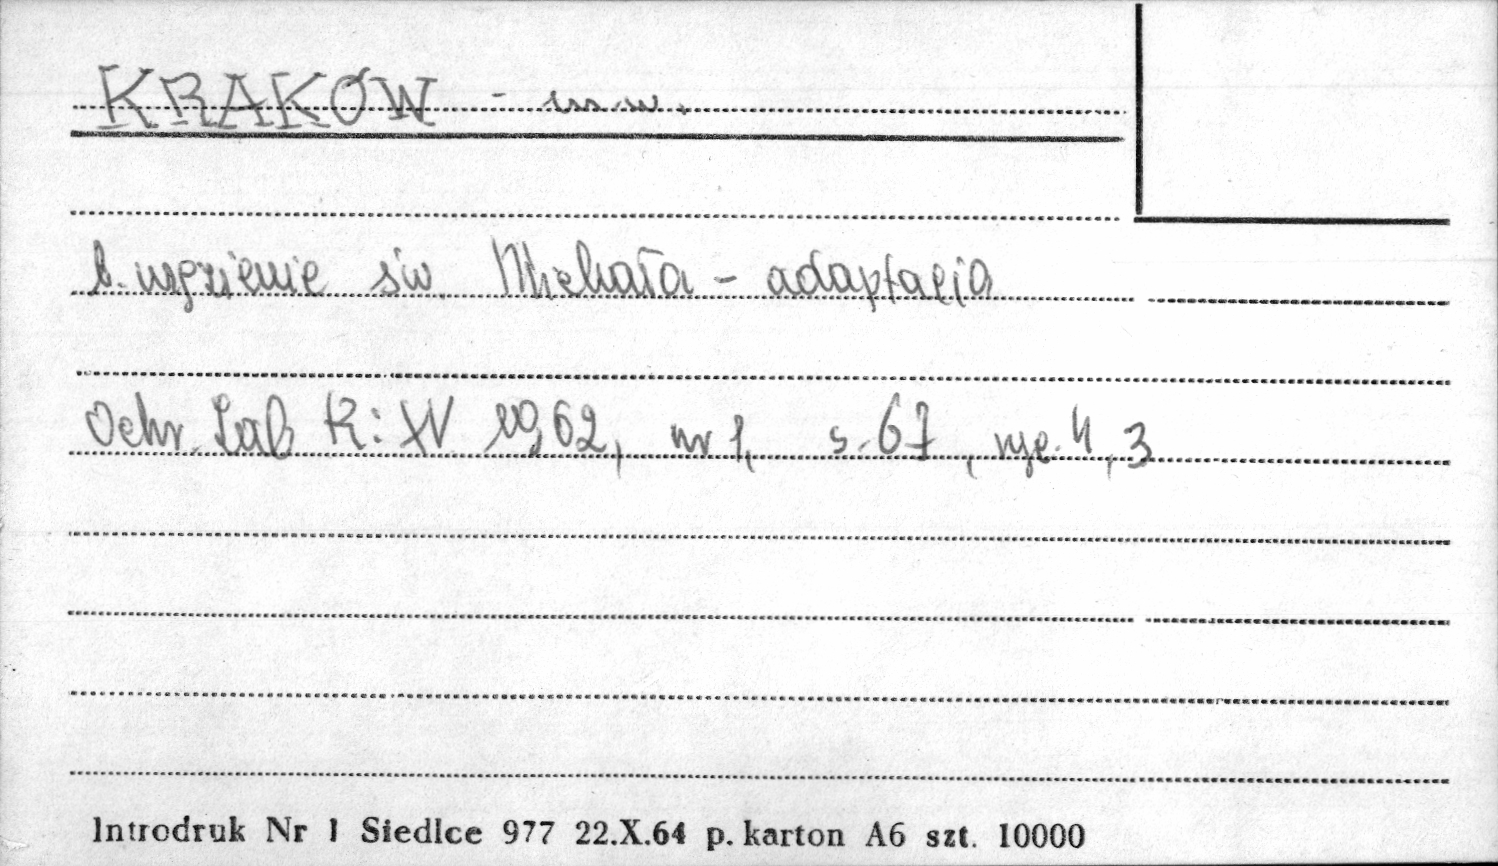 KRAKÓW - m.w.
b. więzienie św. Michała - adaptacja
Ochr. Zab R: XV 1962, nr 1, s. 67, ryc. 4, 3
Introdruk Nr 1 Siedlce 977 22.X.64 p. karton A6 szt. 10000